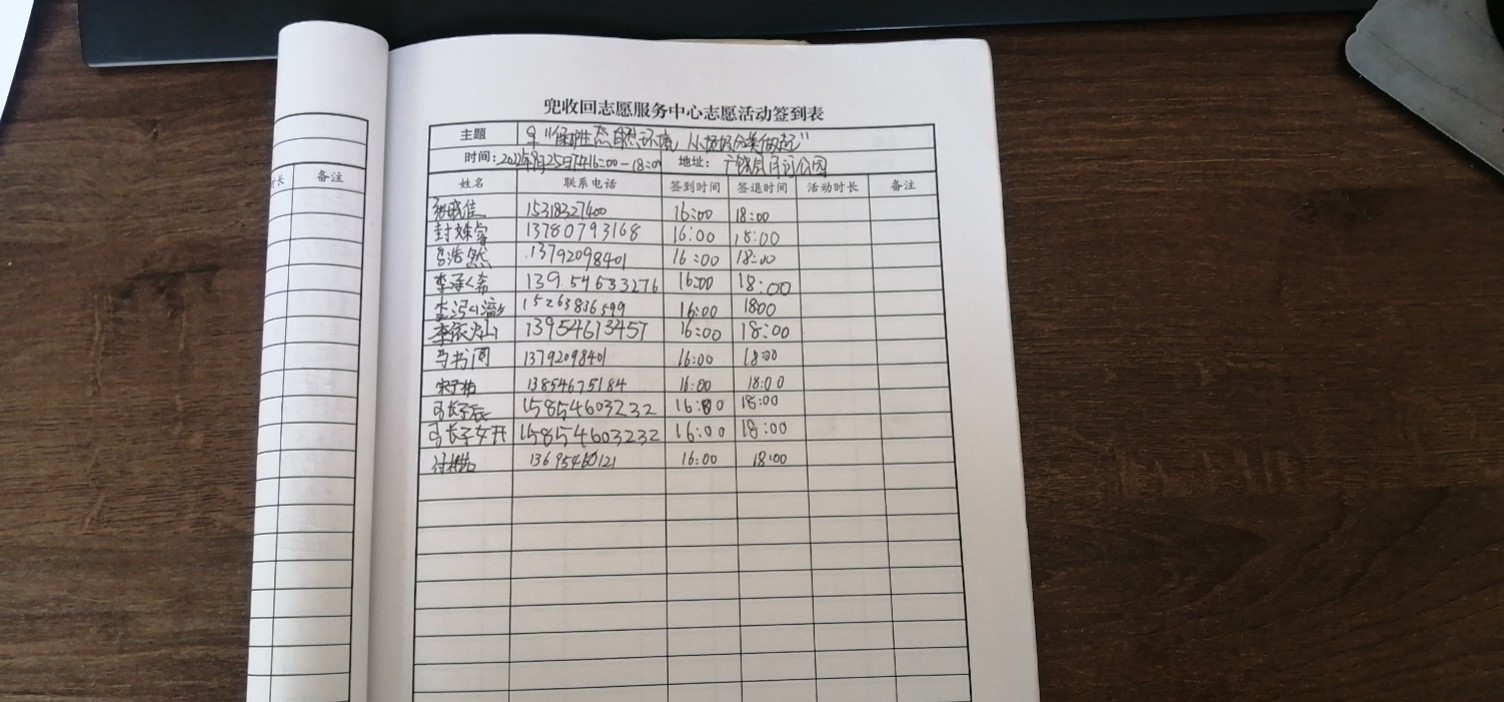 兜收回志愿服务中心志愿活动签到表
主题 "保护生态自然环境 从垃圾分类做起"
时间: 2022年9月25日下午16:00-18:00 地址: 公园
时长 备注
姓名 联系电话 签到时间 签退时间 活动时长 备注
15318327400 16:00 18:00
封姝睿 13780793168 16:00 18:00
马浩然 13792098401 16:00 18:00
李承 139.54633276 16:00 18:00
李 15263836599 16:00 1800
李依 13954613457 16:00 18:00
马书同 13792098401 16:00 18:00
宋子 13854675184 16:00 18:00
马长子辰 15854603232 16:00 18:00
马长子女开 15854603232 16:00 18:00
付 13695460121 16:00 18:00